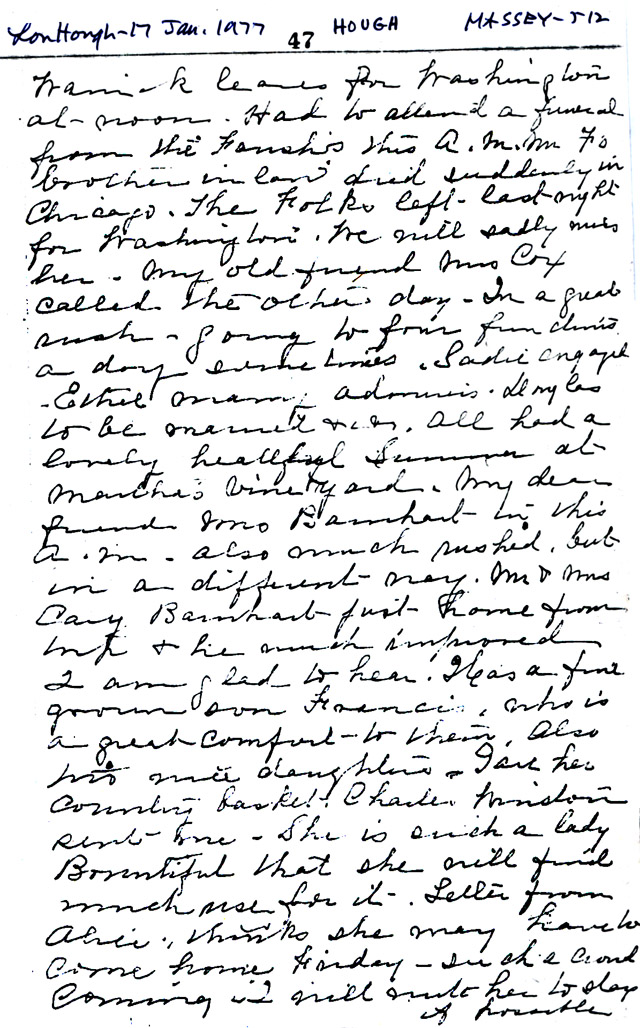 Lon Hough-17 Jan. 1977 47 HOUGH MASSEY-512
leaves for Washington
at noon. Had to attend a funeral
from the this A.M. Mr
brother in law died suddenly in
Chicago. The Folks left last night
for Washington. We will sadly miss
her. My old friend Mrs Cox
called the other day - In a great
rush - going to four functions
a day sometimes. Sadie engaged
- Ethel many admirers. Douglas
to be married &c. All had a
lovely healthful Summer at
Martha's Vineyard. My dear
friend Mrs Barnhart in this
A.M. - also much rushed, but
in a different way. Mr & Mrs
Cary Barnhart just home from
trip & he much improved
I am glad to hear. Has a fine
grown son Francis, who is
a great comfort to them. Also
two nice daughters - I her
Country basket Charles Winston
sent me - She is such a lady
Bountiful that she will find
much use for it. Letter from
Alice, thinks she may have to
come home Friday - such a crowd
coming & I will her to stay
if possible